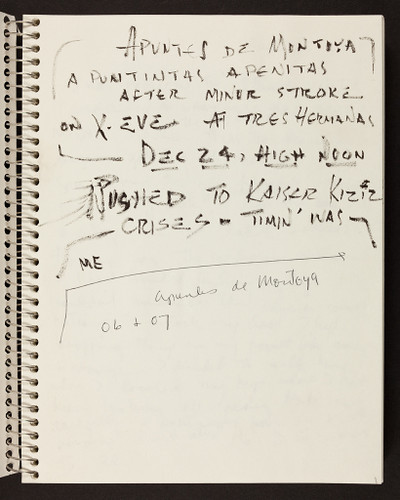 APUNTES DE MONTOYA
A PUNTITAS APENITAS
AFTER MINOR STROKE
ON X·EVE AT TRES HERMANAS
DEC 24, HIGH NOON
RUSHED TO KAISER
CRISES - TIMIN' WAS
ME
apuntes de Montoya
06 & 07